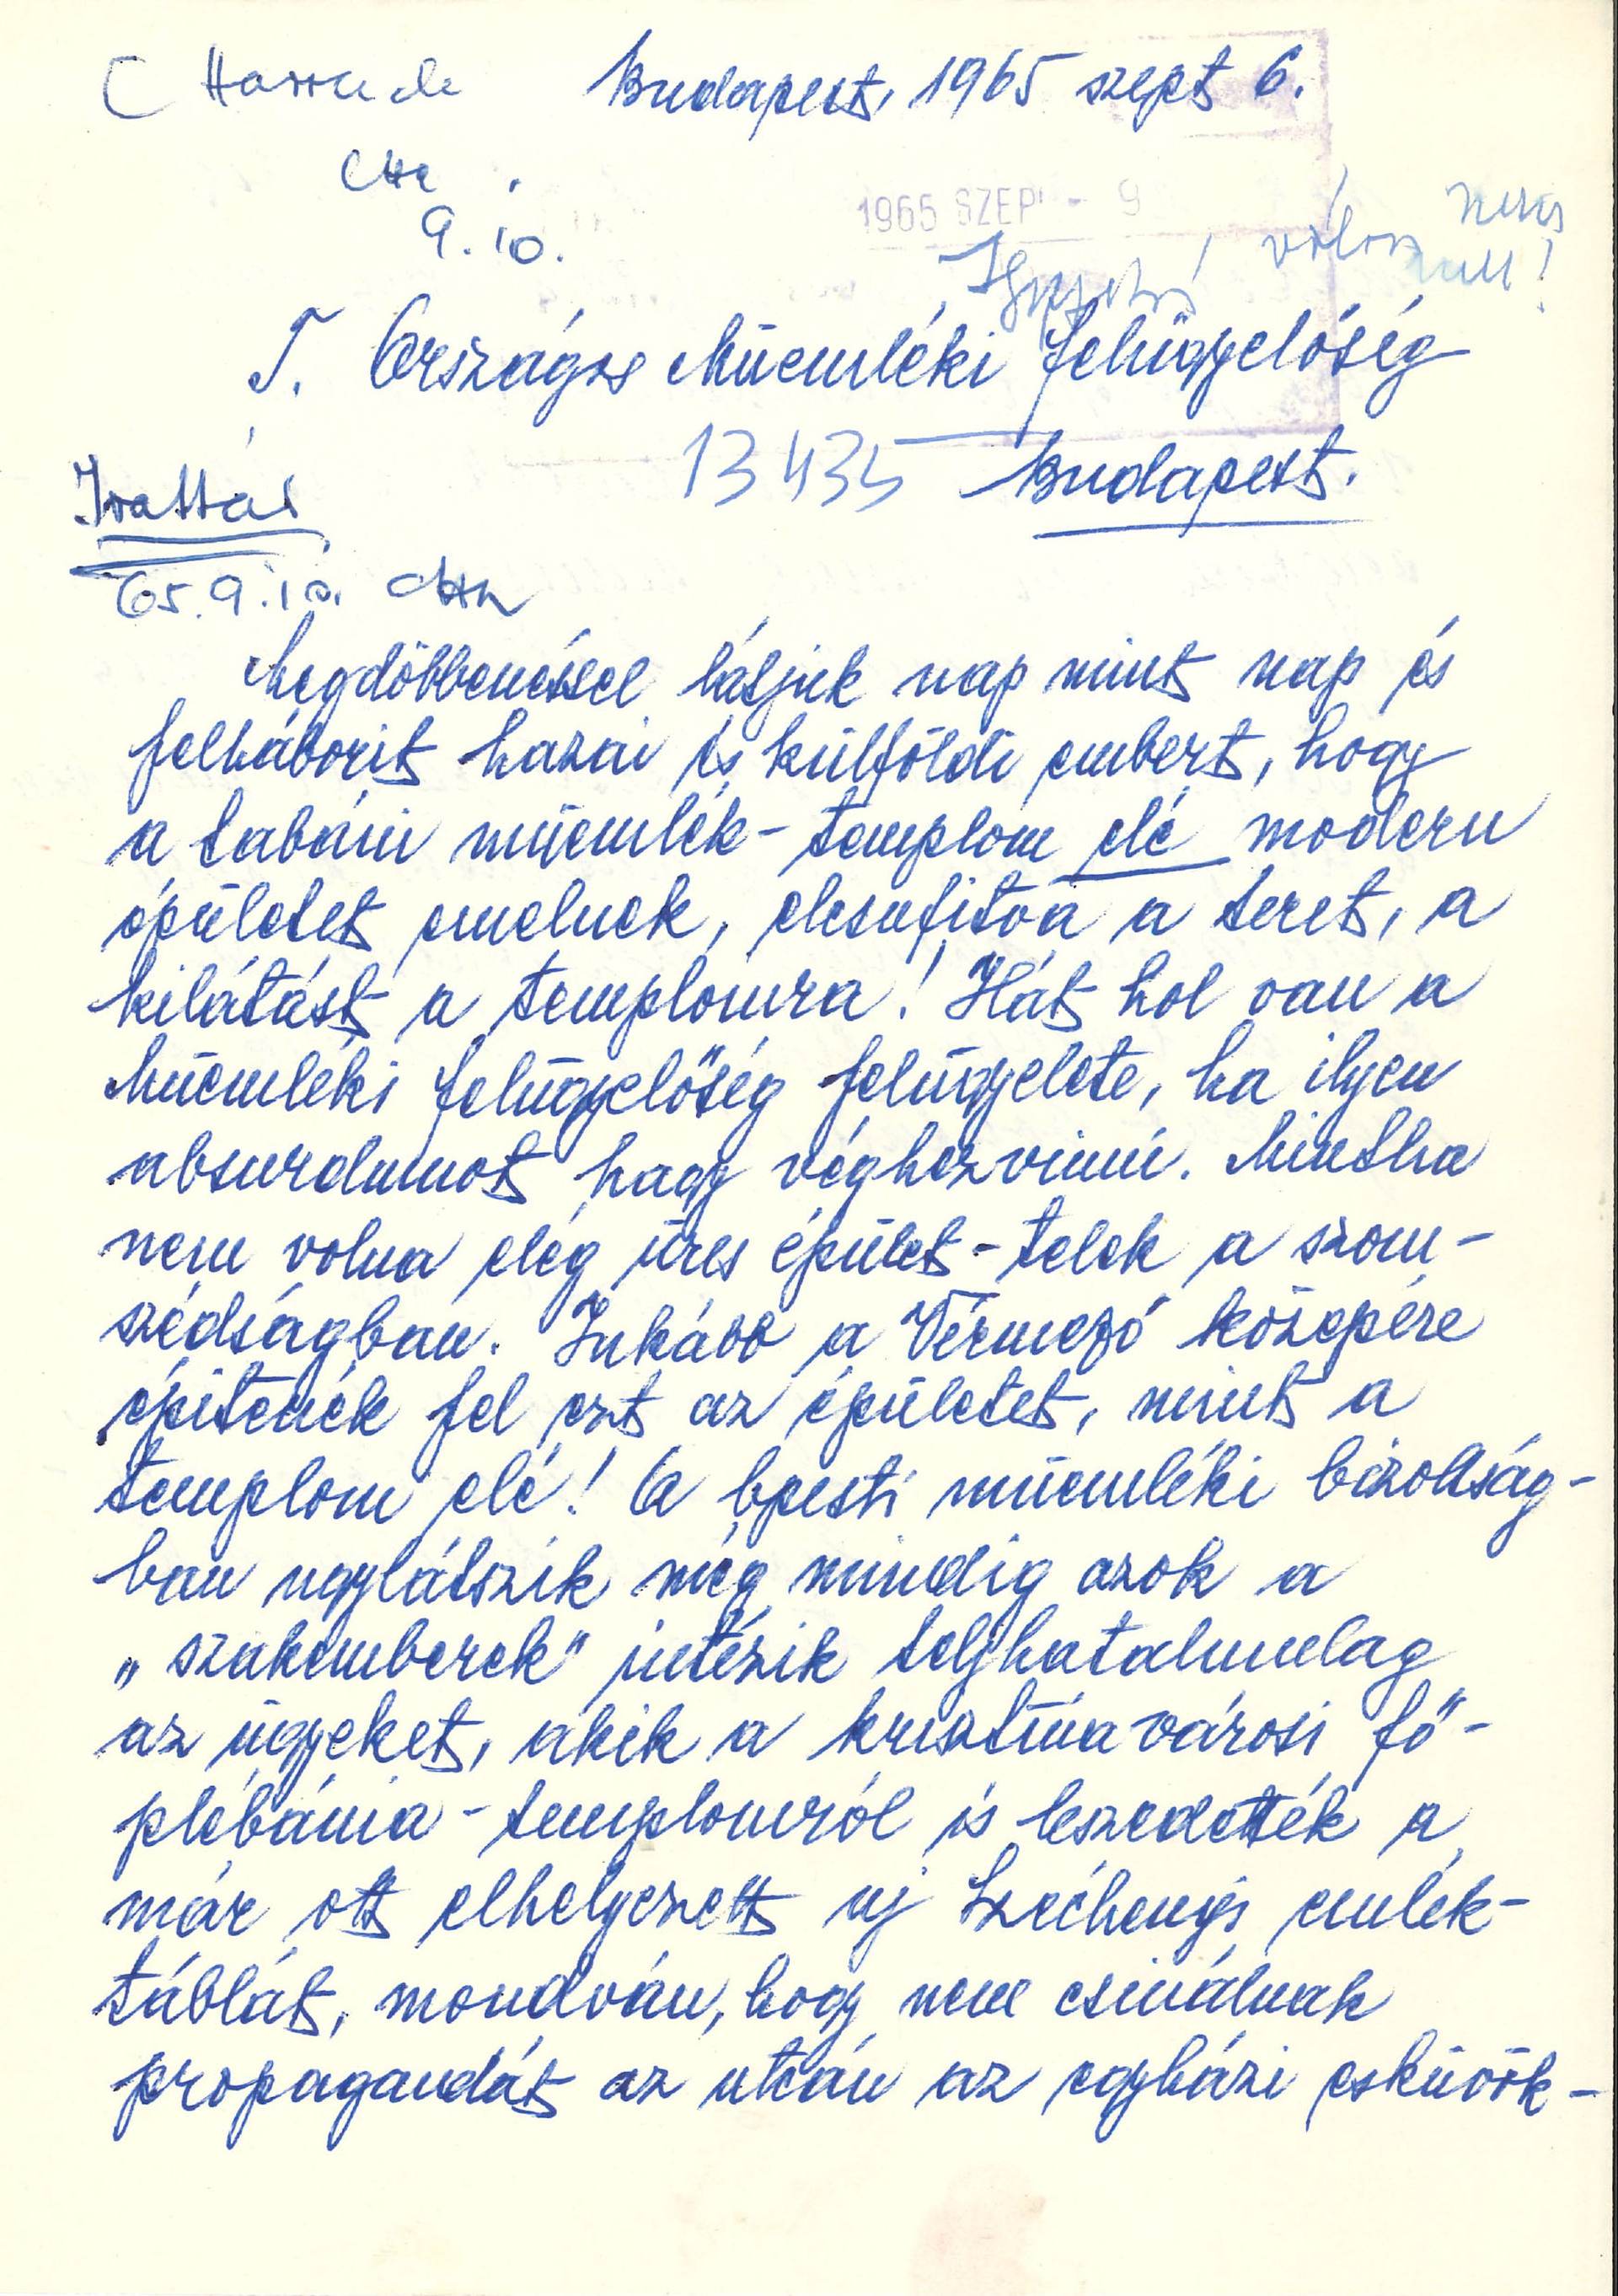 Budapest, 1965 szept 6.
9. 10.
1965 SZEP - 9
válasz nem
kell!
T. Országos Müemléki Felügyelőség
13435 Budapest.
Irattár
65.9.10.
Megdöbbenéssel látjuk nap mint nap és
felháborit hazai és külföldi embert, hogy
a tabáni müemlék-templom elé modern
épületet emelnek, elcsufitva a teret, a
kilátást a templomra! Hát hol van a
Müemléki Felügyelőség felügyelete, ha ilyen
absurdumot hagy véghezvinni. Mintha
nem volna elég üres épület-telek a szom-
szédságban. Inkább a Vérmező közepére
épitenék fel ezt az épületet, mint a
templom elé! A bpesti müemléki bizottság-
ban ugylátszik még mindig azok a
„szakemberek" intézik teljhatalmulag
az ügyeket, akik a krisztinavárosi fő-
plébánia-templomról is leszedették a
már ott elhelyezett uj Széchenyi emlék-
táblát, mondván, hogy nem csinálnak
propagandát az utcán az egyházi esküvők-